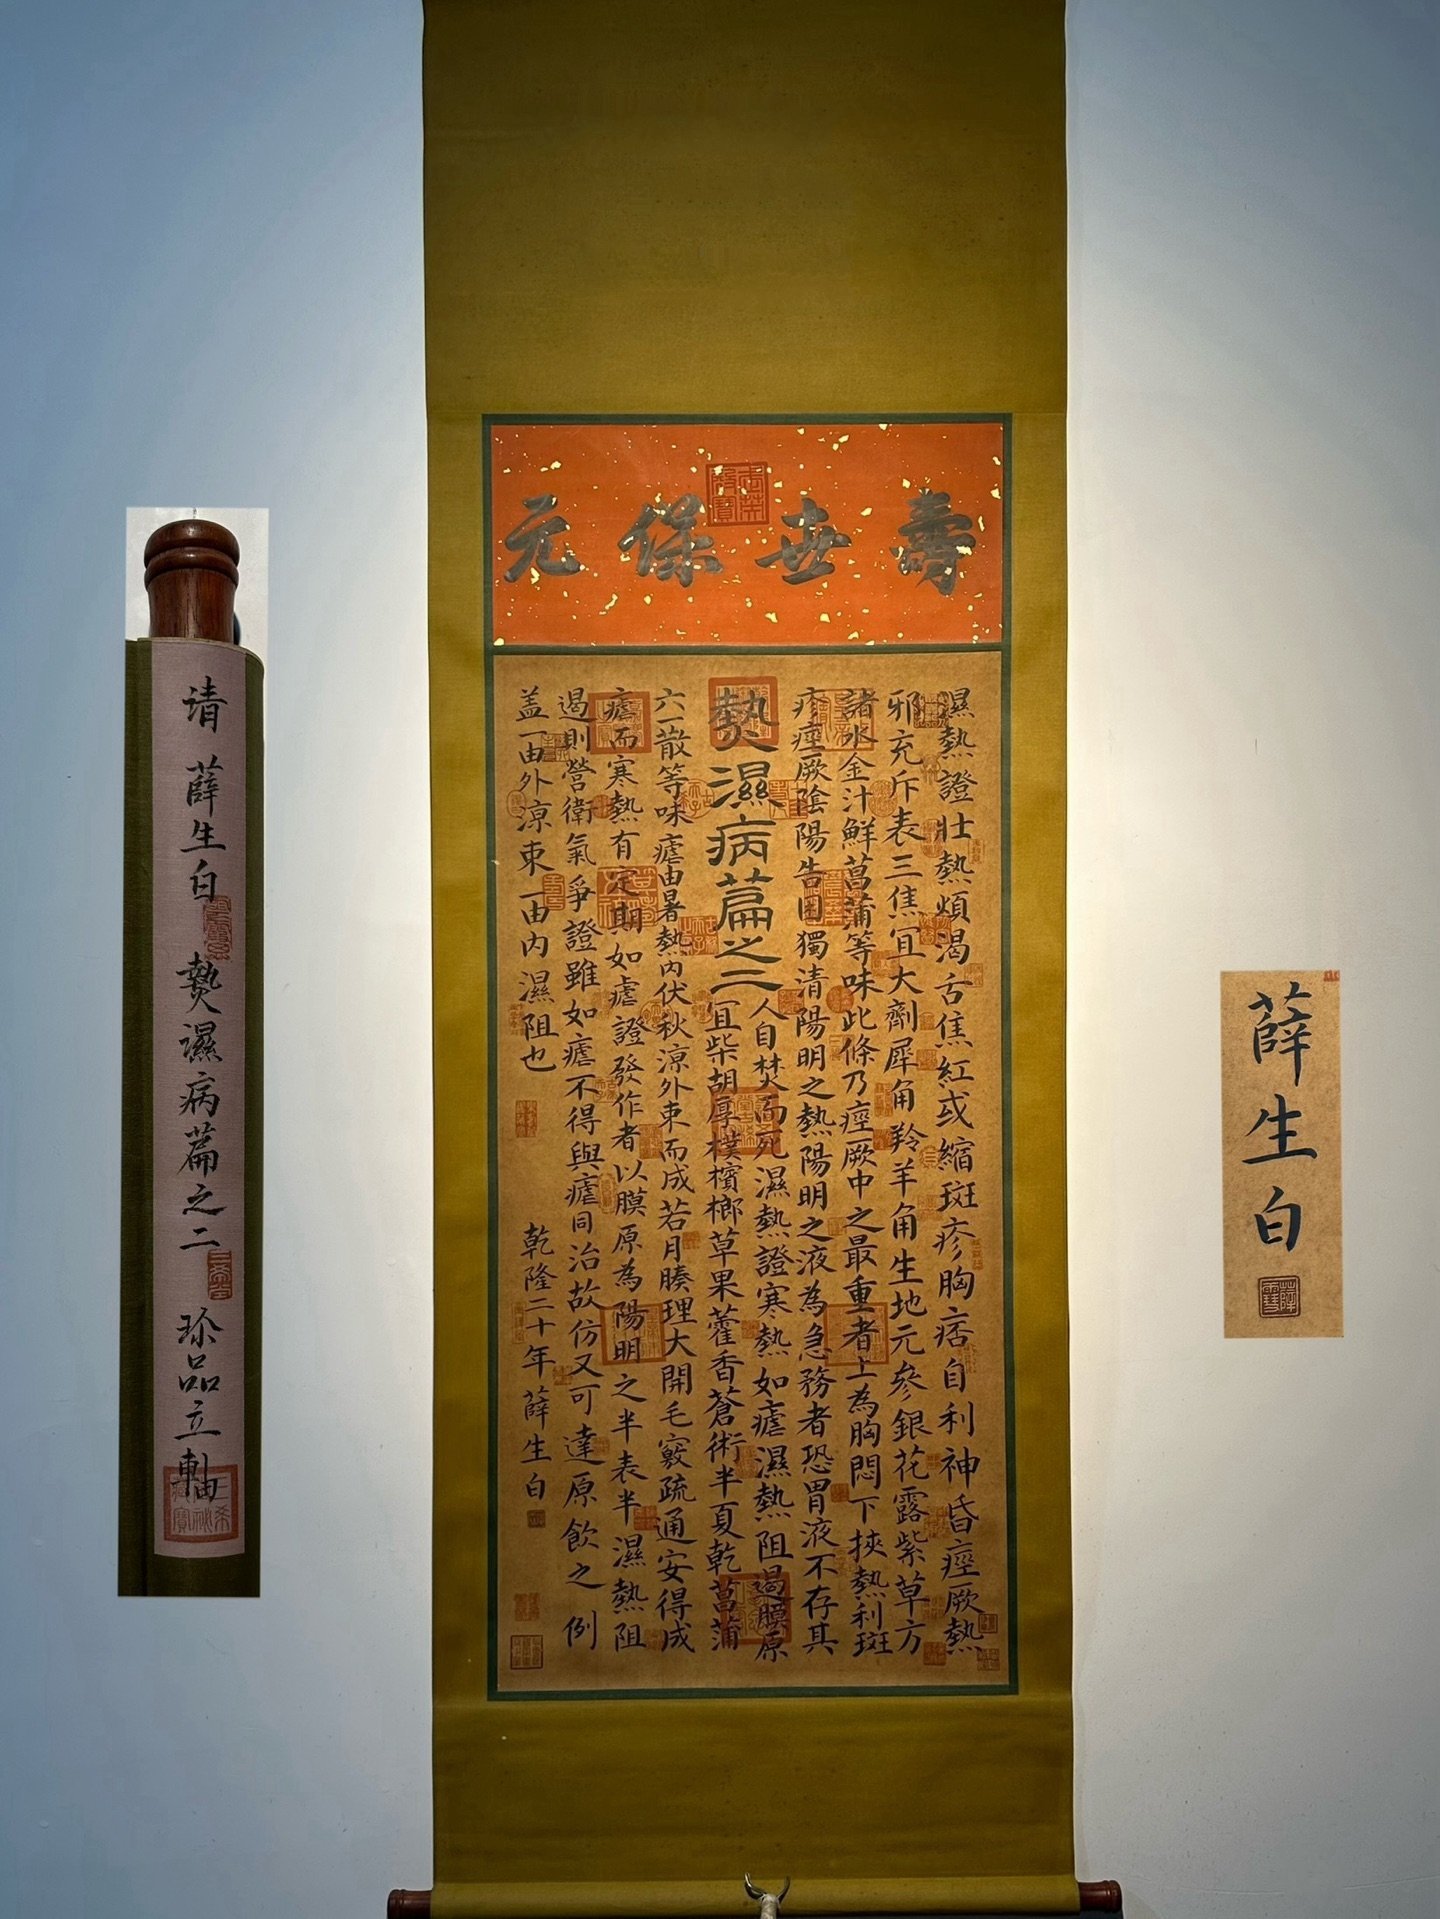 壽世保元
濕熱證壯熱煩渴舌焦紅或縮斑疹胸痞自利神昏痙厥熱
邪充斥表三焦宜大劑犀角羚羊角生地元參銀花露紫草方
諸水金汁鮮菖蒲等味此條乃痙厥中之最重者上為胸悶下挾熱利斑
疹痙厥陰陽告困獨清陽明之熱陽明之液為急務者恐胃液不存其
熱濕病篇之二
人自焚而死濕熱證寒熱如瘧濕熱阻遏膜原
宜柴胡厚樸檳榔草果藿香蒼術半夏乾菖蒲
六一散等味瘧由暑熱內伏秋涼外束而成若月腠理大開毛竅疏通安得成
瘧而寒熱有定期如虐證發作者以膜原為陽明之半表半濕熱阻
遏則營衛氣爭證雖如瘧不得與瘧同治故仿又可達原飲之例
盖一由外涼束一由內濕阻也
乾隆二十年薛生白
请 薛生白 熱濕病篇之二 珍品立軸
薛生白